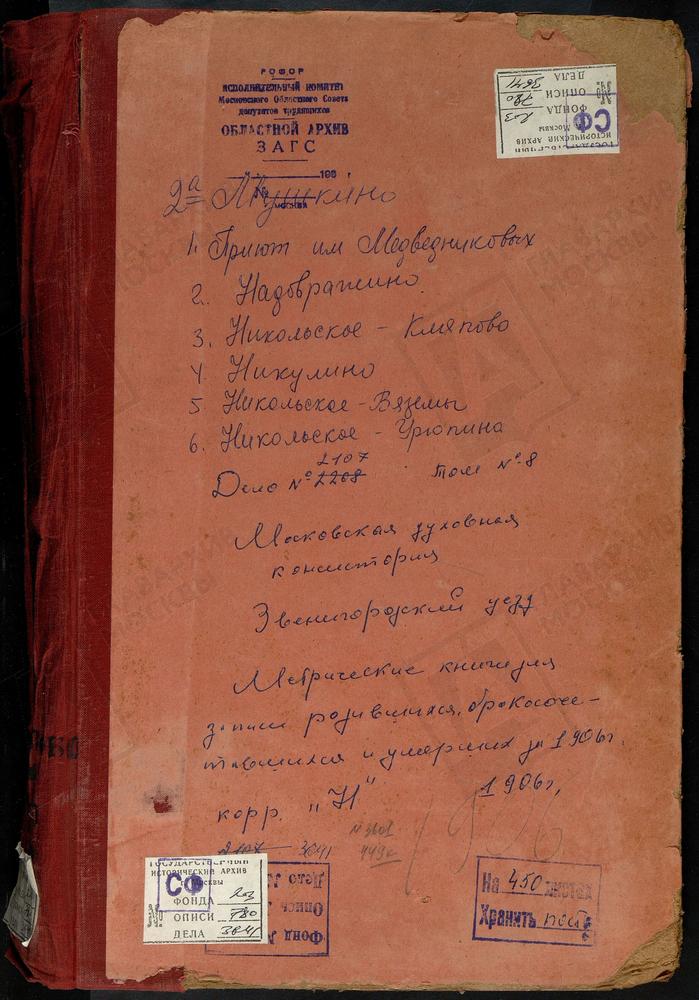 РСФСР
ИСПОЛНИТЕЛЬНЫЙ КОМИТЕТ
Московского Областного Совета
депутатов трудящихся
ОБЛАСТНОЙ АРХИВ
ЗАГС
196 г
№
МОСКВА
2а Мушкино
1. Приют им Медведниковых
2. Надовражино
3. Никольское - Кляпово
4. Никулино
5 Никольское - Вяземы
6. Никольское - Урюпина
2107
Дело № 2208 том № 8
Московская духовная
консистория
Звенигородский уезд
Метрические книги для
записи родившихся, бракосоче-
тавшихся и умерших за 1906г.
1906г,
корр. "Н"
1906
2107 3641
ГОСУДАРСТВЕННЫЙ
ИСТОРИЧЕСКИЙ АРХИВ
г. Москвы
СФ
ФОНДА 203
№ ОПИСИ 780
ДЕЛА 3641
Фонд №
Опись №
Дело №
На 450 листах
Хранить пост.
ГОСУДАРСТВЕННЫЙ
ИСТОРИЧЕСКИЙ АРХИВ
г. Москвы
СФ
ФОНДА 203
№ ОПИСИ 780
ДЕЛА 3641
ГЛАВАРХИВ
МОСКВЫ